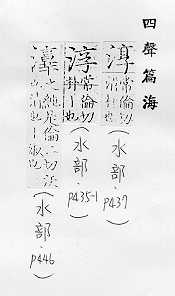 四聲篇海
常倫切
(水部.P437)
淳 常倫切
(水部.P435-1)
之純常倫二切沃也清也
(水部.P446)